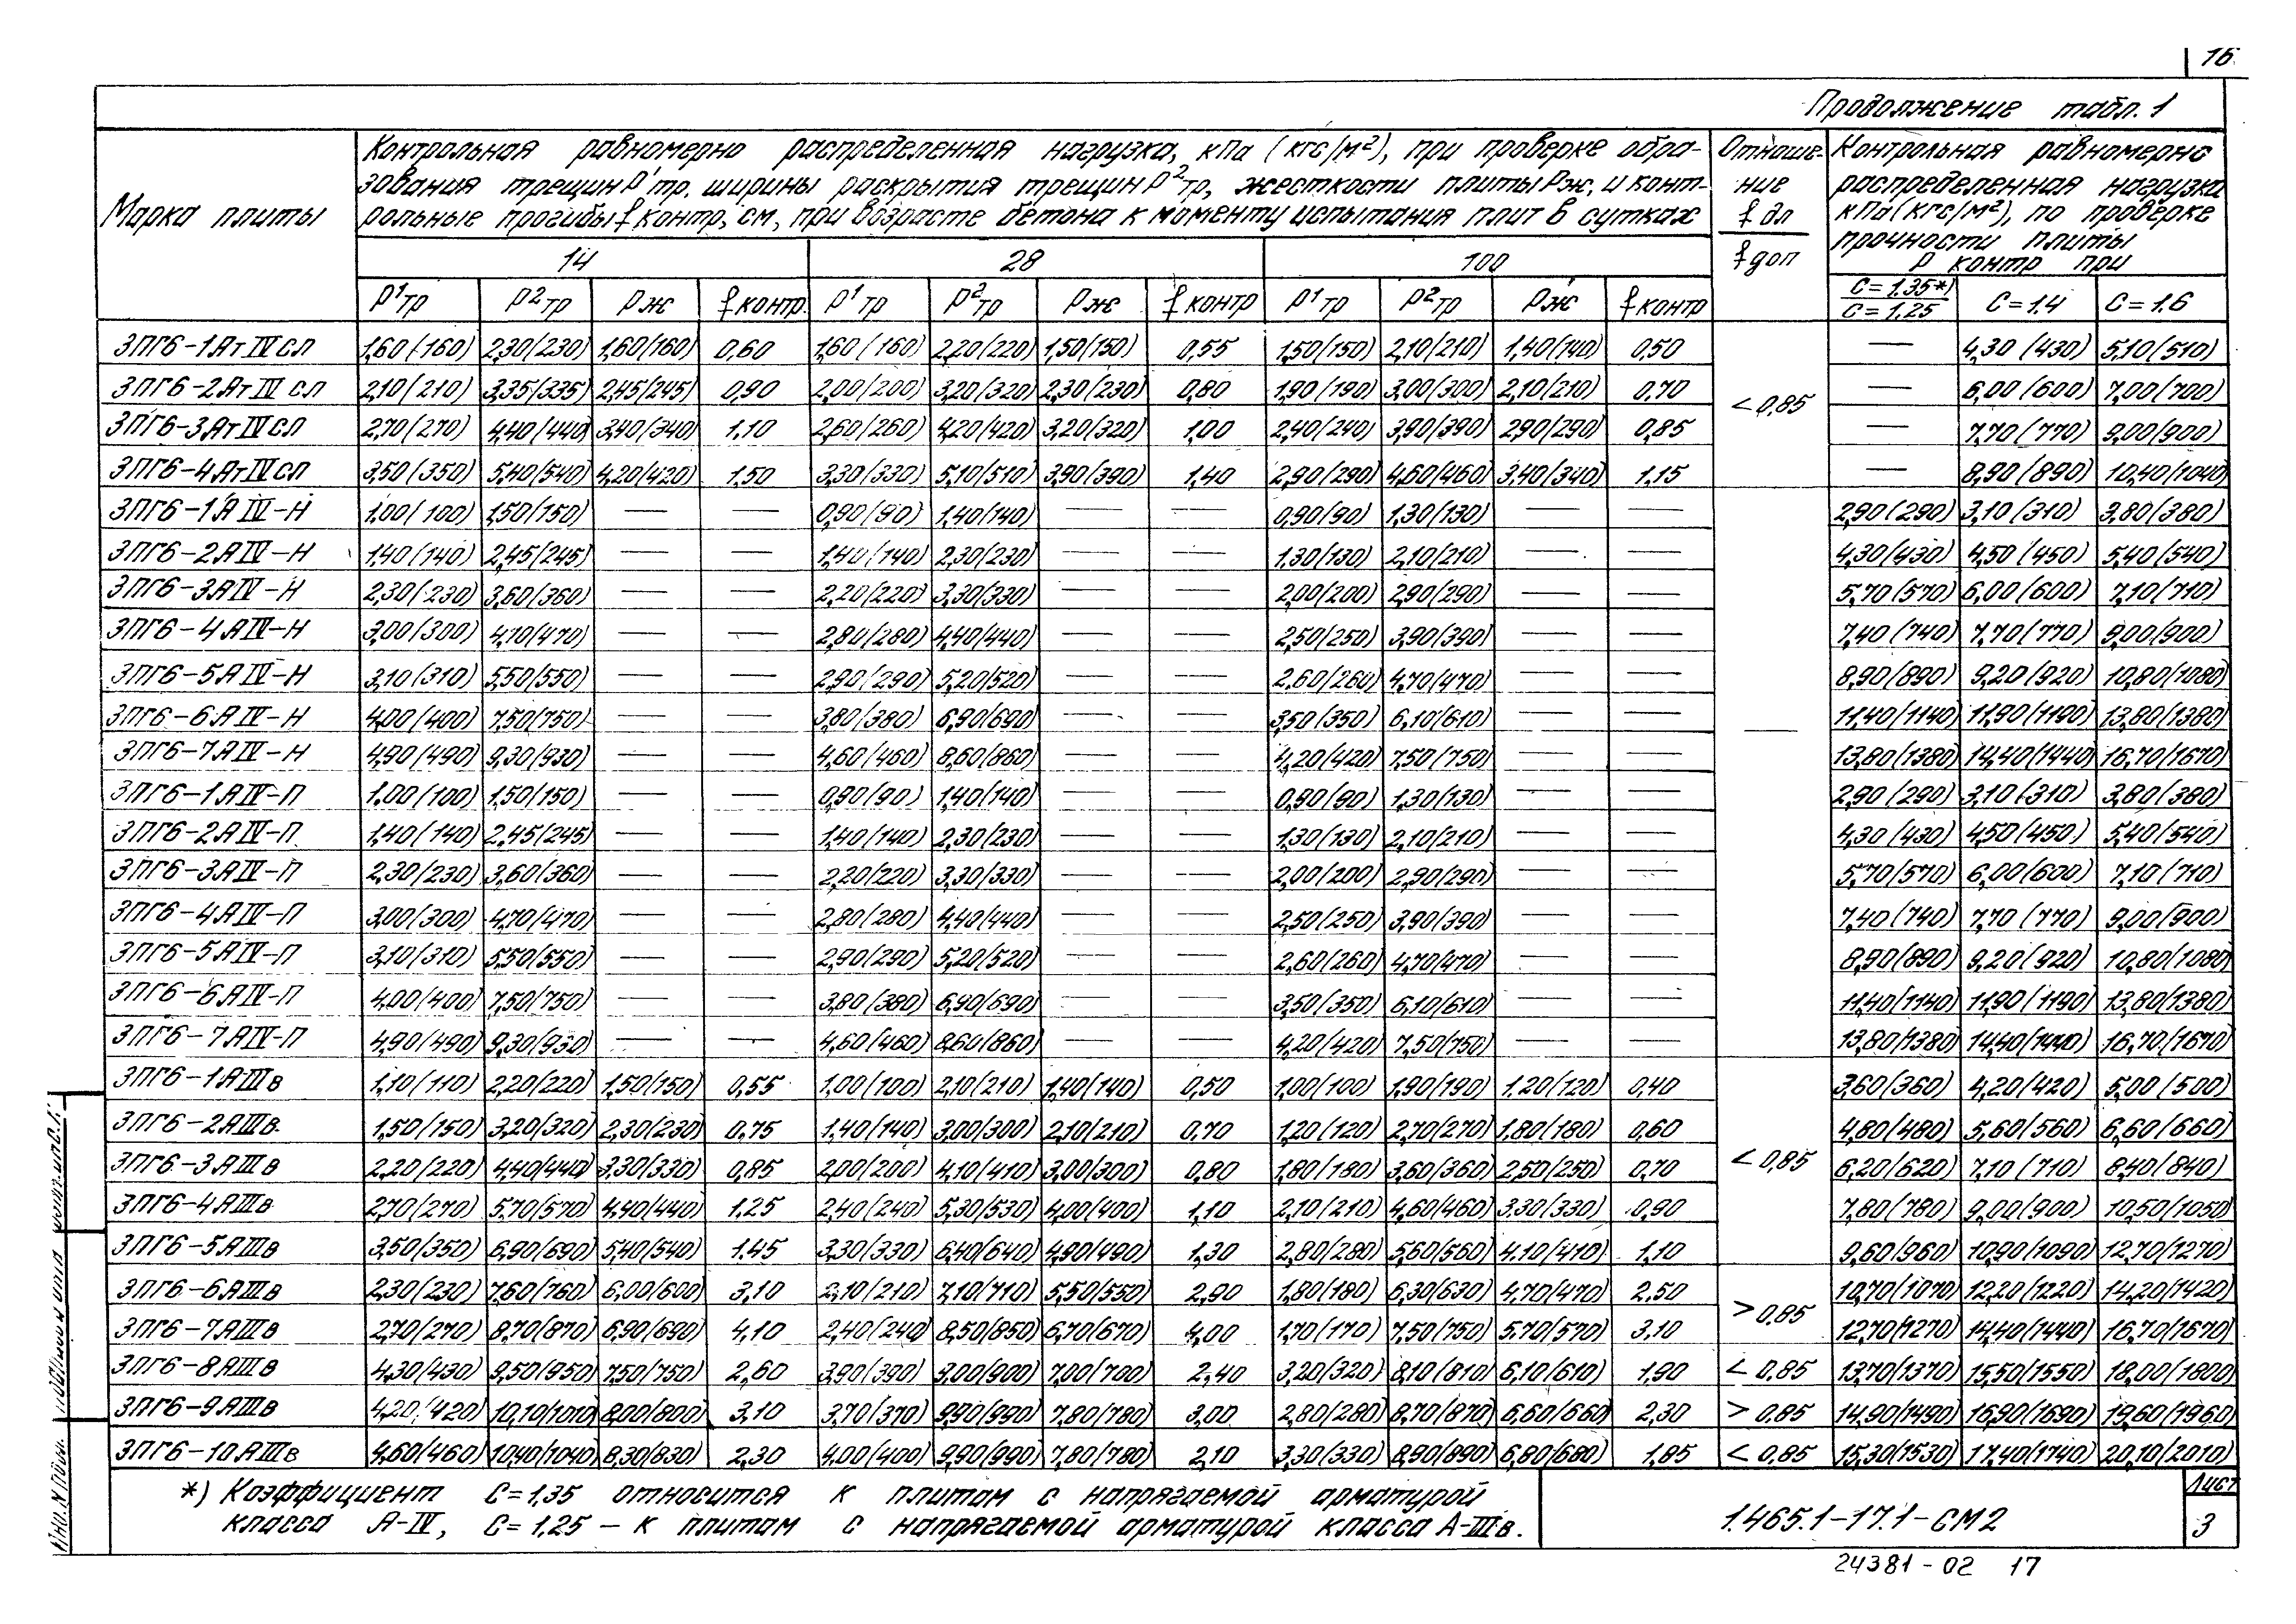 16
Продолжение табл. 1
Марка плиты
Контрольная равномерно распределенная нагрузка, кПа (кгс/м²), при проверке обра-
зования трещин P¹тр, ширины раскрытия трещин P²тр, жесткости плиты Pж, и конт-
рольные прогибы f контр, см, при возрасте бетона к моменту испытания плит в сутках
Отноше-
ние
f дл
f доп
Контрольная равномерно
распределенная нагрузка
кПа (кгс/м²), по проверке
прочности плиты
P контр при
14 28 100
P¹тр P²тр Pж f контр. P¹тр P²тр Pж f контр P¹тр P²тр Pж f контр C=1,35*) C=1,25 C=1,4 C=1,6
3ПГ6-1АтIVсп 1,60(160) 2,30(230) 1,60(160) 0,60 1,60(160) 2,20(220) 1,50(150) 0,55 1,50(150) 2,10(210) 1,40(140) 0,50 — 4,30(430) 5,10(510)
3ПГ6-2АтIVсп 2,10(210) 3,35(335) 2,45(245) 0,90 2,00(200) 3,20(320) 2,30(230) 0,80 1,90(190) 3,00(300) 2,10(210) 0,70 < 0,85 — 6,00(600) 7,00(700)
3ПГ6-3АтIVсп 2,70(270) 4,40(440) 3,40(340) 1,10 2,60(260) 4,20(420) 3,20(320) 1,00 2,40(240) 3,90(390) 2,90(290) 0,85 — 7,70(770) 9,00(900)
3ПГ6-4АтIVсп 3,50(350) 5,40(540) 4,20(420) 1,50 3,30(330) 5,10(510) 3,90(390) 1,40 2,90(290) 4,60(460) 3,40(340) 1,15 — 8,90(890) 10,40(1040)
3ПГ6-1АIV-Н 1,00(100) 1,50(150) — — 0,90(90) 1,40(140) — — 0,90(90) 1,30(130) — — 2,90(290) 3,10(310) 3,80(380)
3ПГ6-2АIV-Н 1,40(140) 2,45(245) — — 1,40(140) 2,30(230) — — 1,30(130) 2,10(210) — — 4,30(430) 4,50(450) 5,40(540)
3ПГ6-3АIV-Н 2,30(230) 3,60(360) — — 2,20(220) 3,30(330) — — 2,00(200) 2,90(290) — — 5,70(570) 6,00(600) 7,10(710)
3ПГ6-4АIV-Н 3,00(300) 4,70(470) — — 2,80(280) 4,40(440) — — 2,50(250) 3,90(390) — — 7,40(740) 7,70(770) 9,00(900)
3ПГ6-5АIV-Н 3,10(310) 5,50(550) — — 2,90(290) 5,20(520) — — 2,60(260) 4,70(470) — — 8,90(890) 9,20(920) 10,80(1080)
3ПГ6-6АIV-Н 4,00(400) 7,50(750) — — 3,80(380) 6,90(690) — — 3,50(350) 6,10(610) — — — 11,40(1140) 11,90(1190) 13,80(1380)
3ПГ6-7АIV-Н 4,90(490) 9,30(930) — — 4,60(460) 8,60(860) — — 4,20(420) 7,50(750) — — 13,80(1380) 14,40(1440) 16,70(1670)
3ПГ6-1АIV-П 1,00(100) 1,50(150) — — 0,90(90) 1,40(140) — — 0,90(90) 1,30(130) — — 2,90(290) 3,10(310) 3,80(380)
3ПГ6-2АIV-П 1,40(140) 2,45(245) — — 1,40(140) 2,30(230) — — 1,30(130) 2,10(210) — — 4,30(430) 4,50(450) 5,40(540)
3ПГ6-3АIV-П 2,30(230) 3,60(360) — — 2,20(220) 3,30(330) — — 2,00(200) 2,90(290) — — 5,70(570) 6,00(600) 7,10(710)
3ПГ6-4АIV-П 3,00(300) 4,70(470) — — 2,80(280) 4,40(440) — — 2,50(250) 3,90(390) — — 7,40(740) 7,70(770) 9,00(900)
3ПГ6-5АIV-П 3,10(310) 5,50(550) — — 2,90(290) 5,20(520) — — 2,60(260) 4,70(470) — — 8,90(890) 9,20(920) 10,80(1080)
3ПГ6-6АIV-П 4,00(400) 7,50(750) — — 3,80(380) 6,90(690) — — 3,50(350) 6,10(610) — — 11,40(1140) 11,90(1190) 13,80(1380)
3ПГ6-7АIV-П 4,90(490) 9,30(930) — — 4,60(460) 8,60(860) — — 4,20(420) 7,50(750) — — 13,80(1380) 14,40(1440) 16,70(1670)
3ПГ6-1АIIIв 1,10(110) 2,20(220) 1,50(150) 0,55 1,00(100) 2,10(210) 1,40(140) 0,50 1,00(100) 1,90(190) 1,20(120) 0,40 3,60(360) 4,20(420) 5,00(500)
3ПГ6-2АIIIв 1,50(150) 3,20(320) 2,30(230) 0,75 1,40(140) 3,00(300) 2,10(210) 0,70 1,20(120) 2,70(270) 1,80(180) 0,60 4,80(480) 5,60(560) 6,60(660)
3ПГ6-3АIIIв 2,20(220) 4,40(440) 3,30(330) 0,85 2,00(200) 4,10(410) 3,00(300) 0,80 1,80(180) 3,60(360) 2,50(250) 0,70 < 0,85 6,20(620) 7,10(710) 8,40(840)
3ПГ6-4АIIIв 2,70(270) 5,70(570) 4,40(440) 1,25 2,40(240) 5,30(530) 4,00(400) 1,10 2,10(210) 4,60(460) 3,30(330) 0,90 7,80(780) 9,00(900) 10,50(1050)
3ПГ6-5АIIIв 3,50(350) 6,90(690) 5,40(540) 1,45 3,30(330) 6,40(640) 4,90(490) 1,30 2,80(280) 5,60(560) 4,10(410) 1,10 9,60(960) 10,90(1090) 12,70(1270)
3ПГ6-6АIIIв 2,30(230) 7,60(760) 6,00(600) 3,10 2,10(210) 7,10(710) 5,50(550) 2,90 1,80(180) 6,30(630) 4,70(470) 2,50 > 0,85 10,70(1070) 12,20(1220) 14,20(1420)
3ПГ6-7АIIIв 2,70(270) 8,70(870) 6,90(690) 4,10 2,40(240) 8,50(850) 6,70(670) 4,00 1,70(170) 7,50(750) 5,70(570) 3,10 12,70(1270) 14,40(1440) 16,70(1670)
3ПГ6-8АIIIв 4,30(430) 9,50(950) 7,50(750) 2,60 3,90(390) 9,00(900) 7,00(700) 2,40 3,20(320) 8,10(810) 6,10(610) 1,90 < 0,85 13,70(1370) 15,50(1550) 18,00(1800)
3ПГ6-9АIIIв 4,20(420) 10,10(1010) 8,00(800) 3,10 3,70(370) 9,90(990) 7,80(780) 3,00 2,80(280) 8,70(870) 6,60(660) 2,30 > 0,85 14,90(1490) 16,90(1690) 19,60(1960)
3ПГ6-10АIIIв 4,60(460) 10,40(1040) 8,30(830) 2,30 4,00(400) 9,90(990) 7,80(780) 2,10 3,30(330) 8,90(890) 6,80(680) 1,85 < 0,85 15,30(1530) 17,40(1740) 20,10(2010)
*) Коэффициент C=1,35 относится к плитам с напрягаемой арматурой
класса А-IV, C=1,25 — к плитам с напрягаемой арматурой класса А-IIIв.
1.465.1-17.1-СМ2
Лист
3
24381-02 17